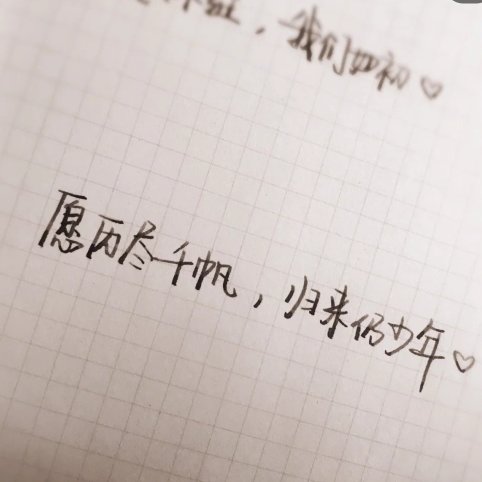 ，我们如初♡
愿历尽千帆，归来仍少年♡